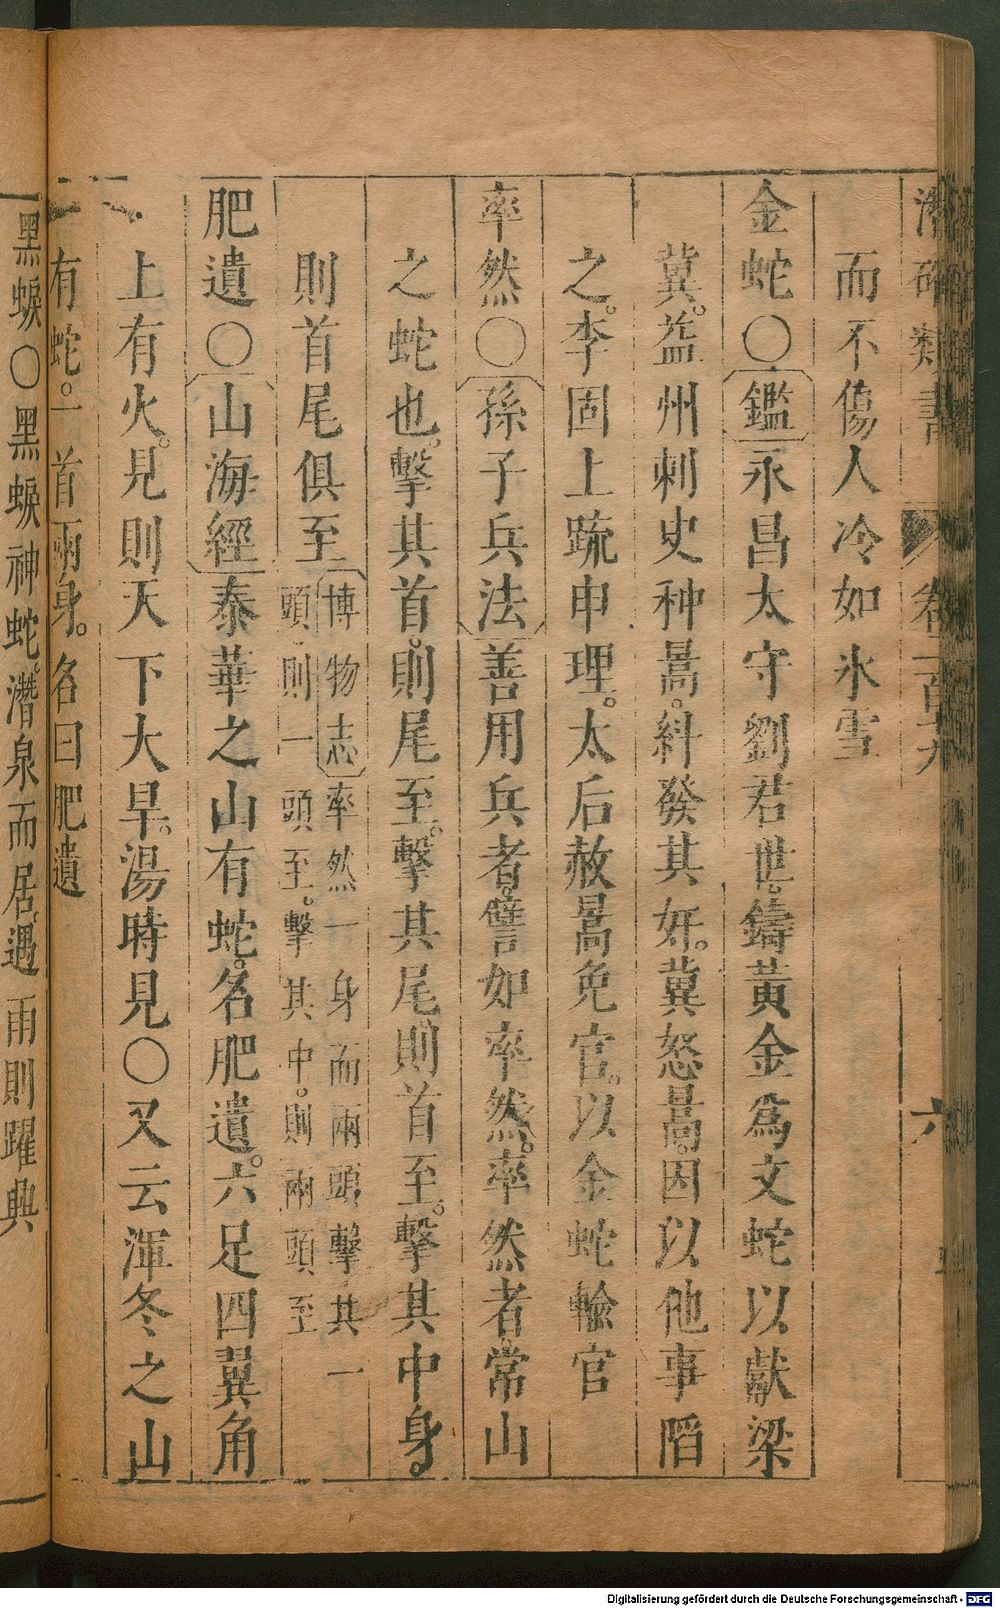 潛確類書 卷一百十九 六
而不傷人冷如氷雪
金蛇〇鑑永昌太守劉君世鑄黃金爲文蛇以獻梁
冀益州刺史种暠糾發其奸冀怒暠因以他事䧟
之李固上䟽申理太后赦暠免官以金蛇輸官
率然〇孫子兵法善用兵者譬如率然率然者常山
之蛇也擊其首則尾至擊其尾則首至擊其中身
則首尾俱至博物志率然一身而兩頭擊其一
頭則一頭至擊其中則兩頭至
肥遺〇山海經泰華之山有蛇名肥遺六足四翼角
上有火見則天下大旱湯時見〇又云渾冬之山
有蛇一首兩身名曰肥遺
黑蜧〇黑蜧神蛇潛泉而居遇雨則躍興
Digitalisierung gefördert durch die Deutsche Forschungsgemeinschaft - DFG